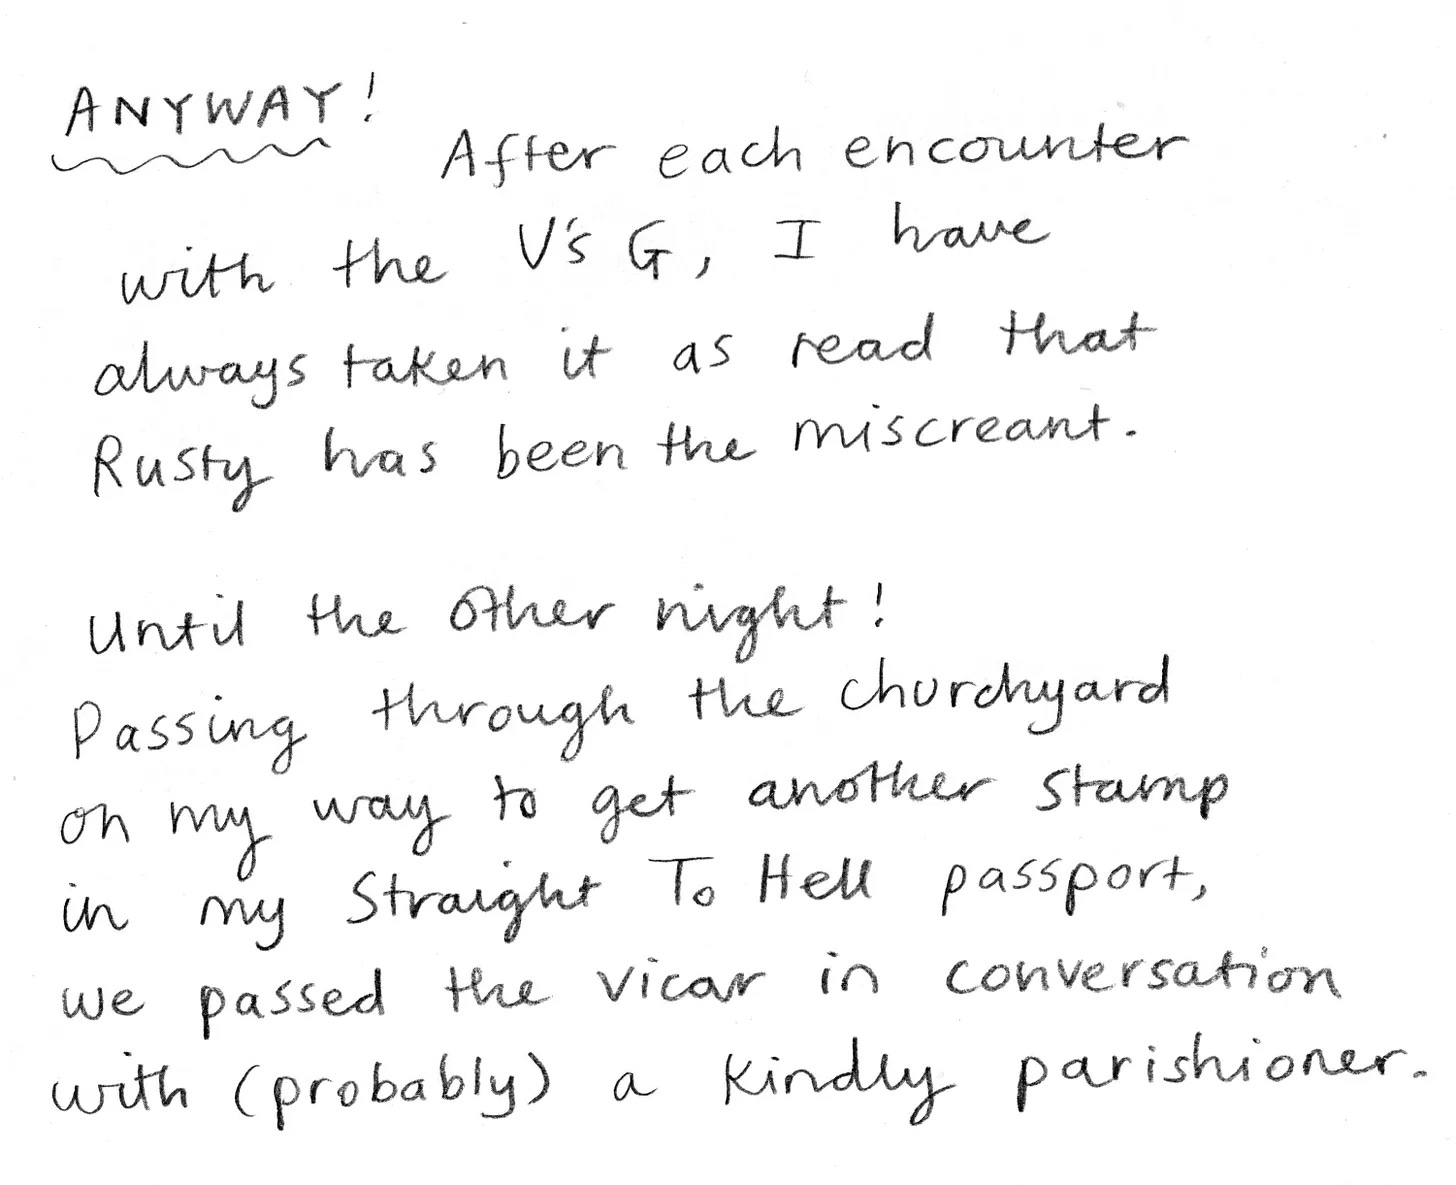 ANYWAY!
After each encounter
with the V's G, I have
always taken it as read that
Rusty has been the miscreant.
Until the other night!
Passing through the churchyard
on my way to get another stamp
in my Straight To Hell passport,
we passed the vicar in conversation
with (probably) a kindly parishioner.